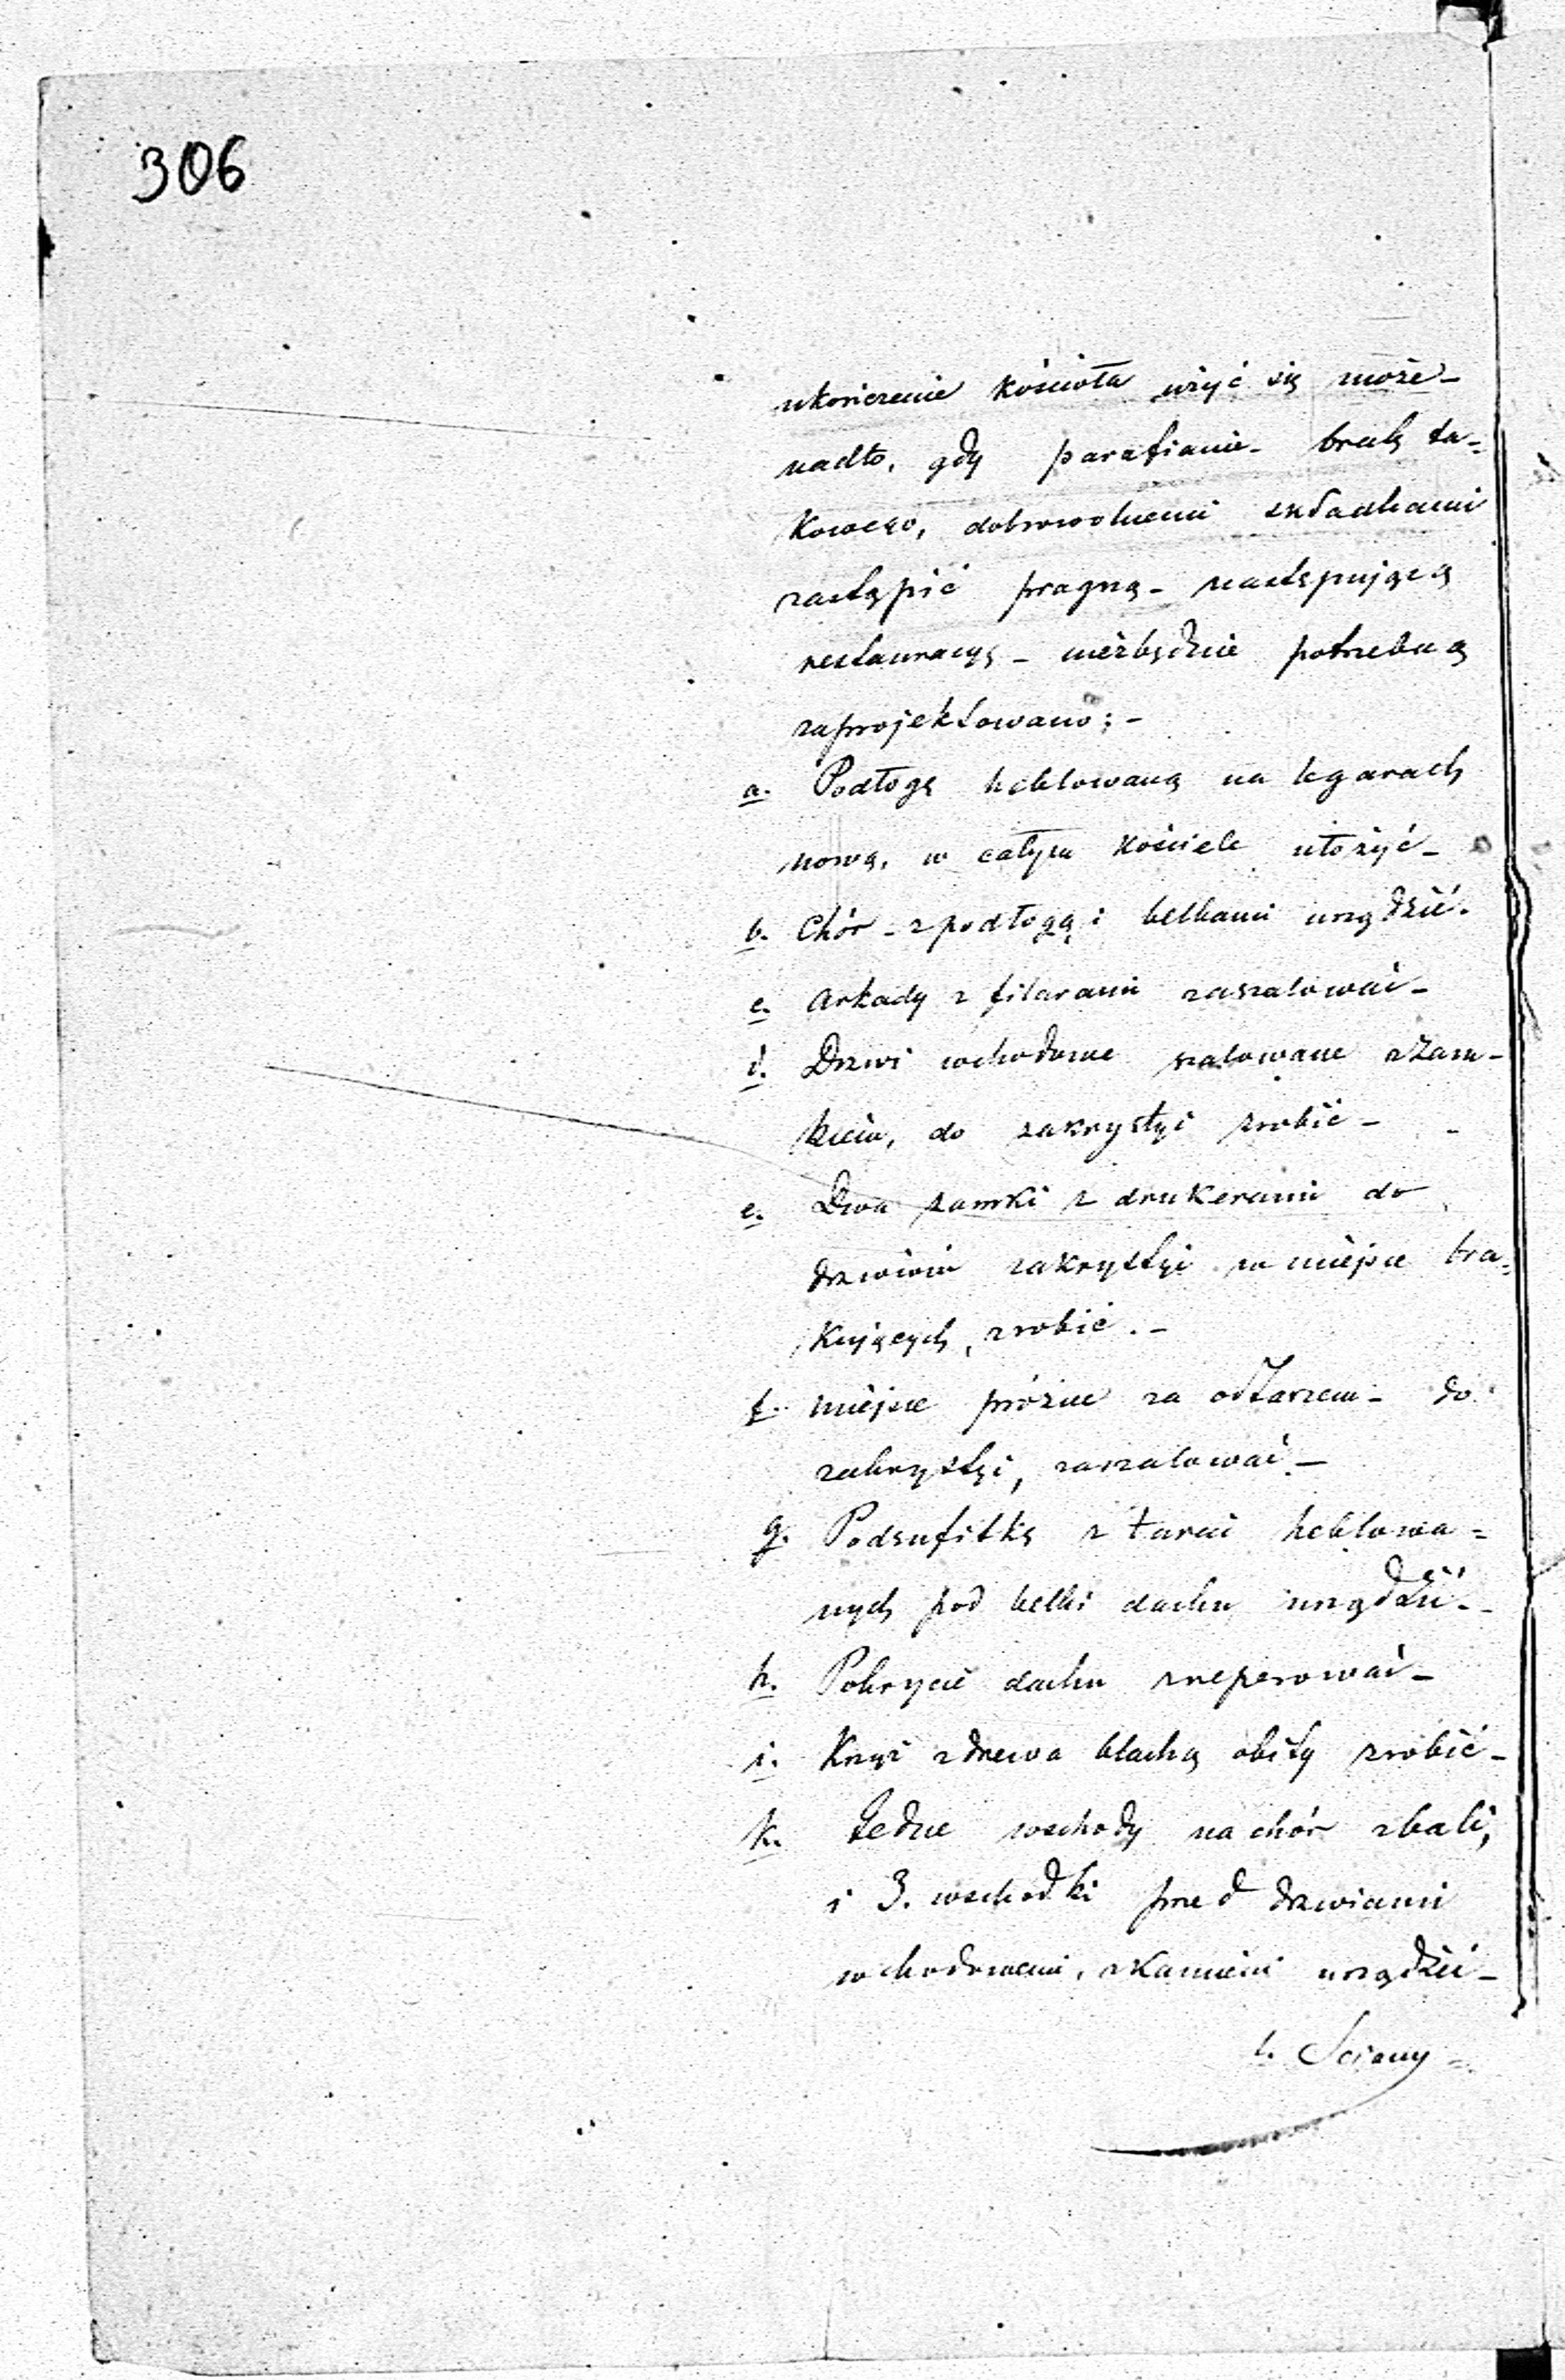 306
ukończenie kościoła użyć się może –
nadto, gdy parafianie – brak ta=
kowego, dobrowolnemi składkami
zastąpić pragną – następującą
restauracyą – niezbędnie potrzebną
zaprojektowano; –
a. Podłogę heblowaną na legarach
nową, w całym kościele ułożyć –
b. Chór – z podłogą i belkami urządzić.
c. Arkady z filarami zaszalować –
d. Drzwi wchodowe szalowane z zam-
kiem, do zakrystyi zrobić –
e. Dwa zamki z drukerami do
drzwiów zakrystyi w miejsce bra=
kujących, zrobić. –
f. miejsce próżne za ołtarzem – do
zakrystyi, zaszalować. –
g. Podsufitkę z tarcic heblowa=
nych pod belki dachu urządzić. –
h. Pokrycie dachu zreperować –
i. Krzyż z drewa blachą obity zrobić –
k. Jedne wschody na chór z bali,
i 3. wschodki przed drzwiami
wchodowemi, z kamieni urządzić –
l. Sciany =